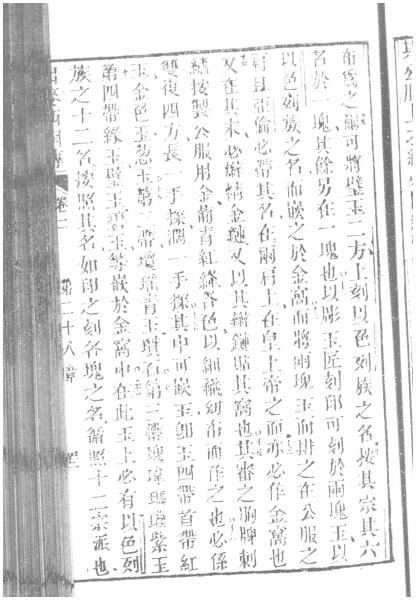 布爲之爾可將璧玉二方上刻以色列族之名按其宗其六
名於一塊其餘另在一塊也以彫玉匠刻印可刻於兩塊玉以
以色列族之名而嵌之於金窩而將兩塊玉而排之在公服之
肩且亞倫必帶其名在兩肩上在皇上帝之面亦必作金窩也
又在其末必辮精金鏈又以其辮鏈貼其窩也其審之胸牌刺
繡按製公服用金箭青紅絳各色以細織幼布而作之也必係
雙復四方長一手探濶一手探其中可嵌玉卽玉四帶首帶紅
玉金色玉葱玉第二帶瓊琣青玉瓆石第三帶瑰瑋瑪瑙紫玉
第四帶綠玉璧玉碧玉等嵌於金窩中在此玉上必有以色列
族之十二名按照其名如印之刻各塊之名循照十二宗派也
第二十八章